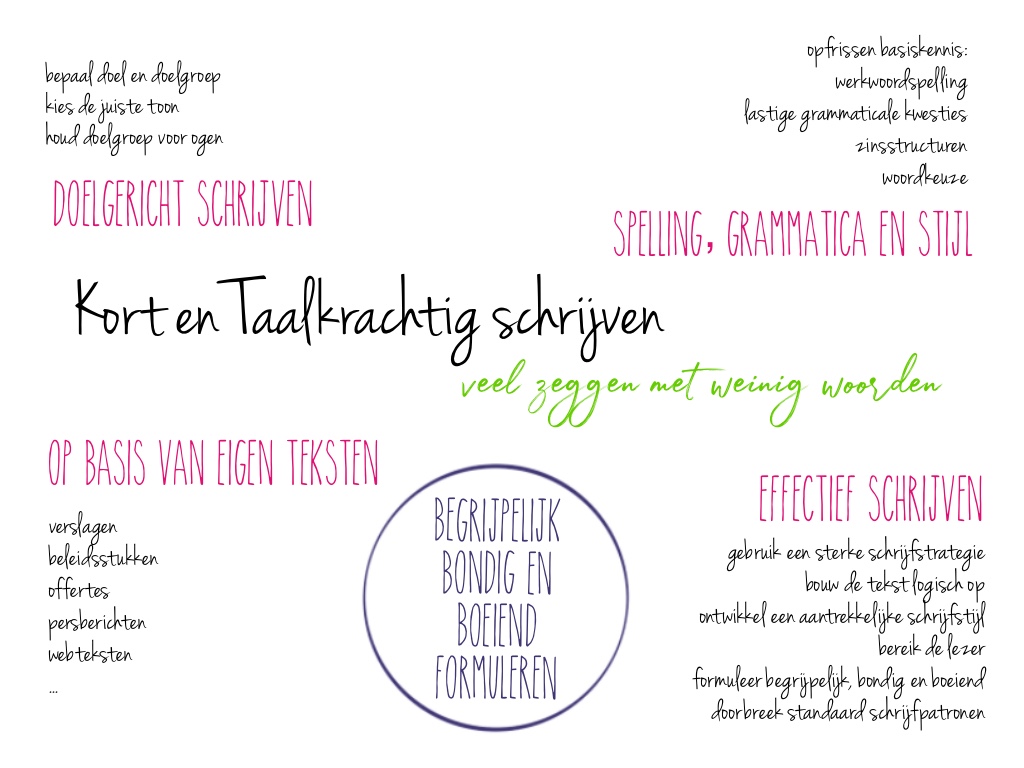 bepaal doel en doelgroep
kies de juiste toon
houd doelgroep voor ogen
DOELGERICHT SCHRIJVEN
opfrissen basiskennis:
werkwoordspelling
lastige grammaticale kwesties
zinsstructuren
woordkeuze
SPELLING, GRAMMATICA EN STIJL
Kort en Taalkrachtig schrijven
veel zeggen met weinig woorden
OP BASIS VAN EIGEN TEKSTEN
verslagen
beleidsstukken
offertes
persberichten
webteksten
...
BEGRIJPELIJK
BONDIG EN
BOEIEND
FORMULEREN
EFFECTIEF SCHRIJVEN
gebruik een sterke schrijfstrategie
bouw de tekst logisch op
ontwikkel een aantrekkelijke schrijfstijl
bereik de lezer
formuleer begrijpelijk, bondig en boeiend
doorbreek standaard schrijfpatronen